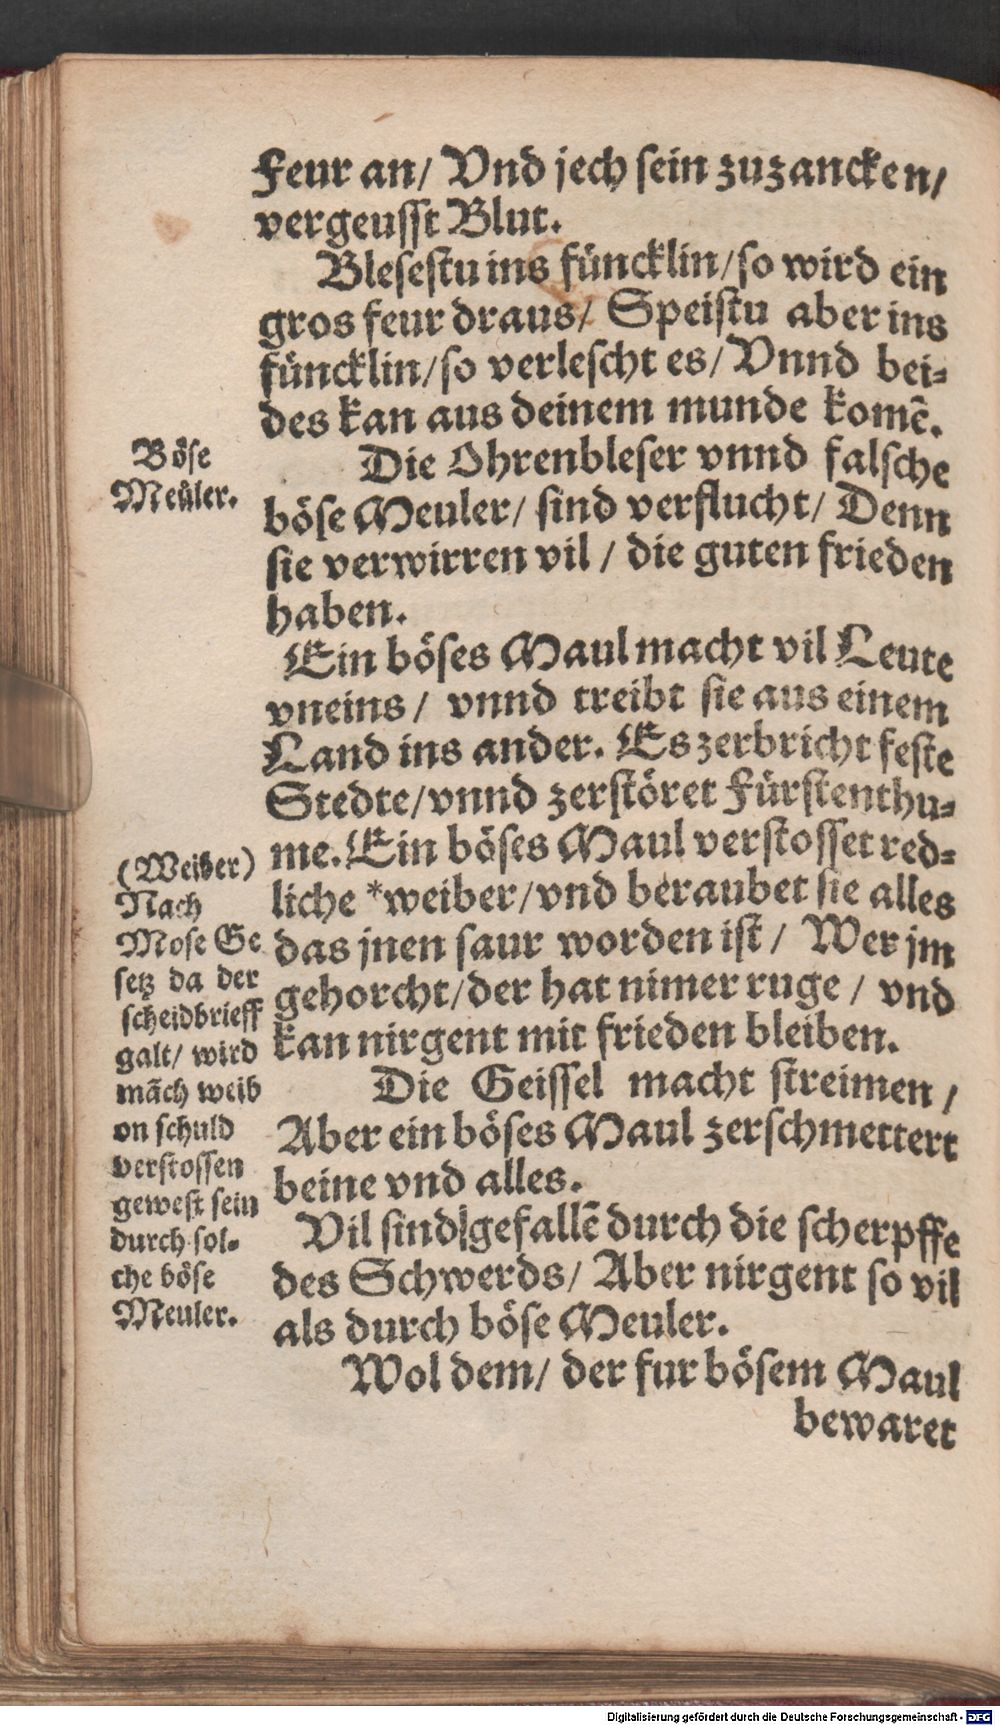 Feur an/ Vnd jech sein zuzancken/
vergeusst Blut.
Blesestu ins füncklin/so wird ein
gros feur draus/ Speistu aber ins
füncklin/so verlescht es/ Vnnd bei-
des kan aus deinem munde komẽ.
Böse
Meüler.
Die Ohrenbleser vnnd falsche
böse Meuler/ sind verflucht/ Denn
sie verwirren vil / die guten frieden
haben.
Ein böses Maul macht vil Leute
vneins / vnnd treibt sie aus einem
Land ins ander. Es zerbricht feste
Stedte/vnnd zerstöret Fürstenthu-
me. Ein böses Maul verstosset red-
liche *weiber/vnd beraubet sie alles
das jnen saur worden ist / Wer jm
gehorcht/der hat nimer ruge / vnd
kan nirgent mit frieden bleiben.
(Weiber)
Nach
Mose Ge
setz da der
scheidbrieff
galt/ wird
mãch weib
on schuld
verstossen
gewest sein
durch sol-
che böse
Meuler.
Die Geissel macht streimen /
Aber ein böses Maul zerschmettert
beine vnd alles.
Vil sind gefallẽ durch die scherpffe
des Schwerds/ Aber nirgent so vil
als durch böse Meuler.
Wol dem/ der fur bösem Maul
bewaret
Digitalisierung gefördert durch die Deutsche Forschungsgemeinschaft - DFG